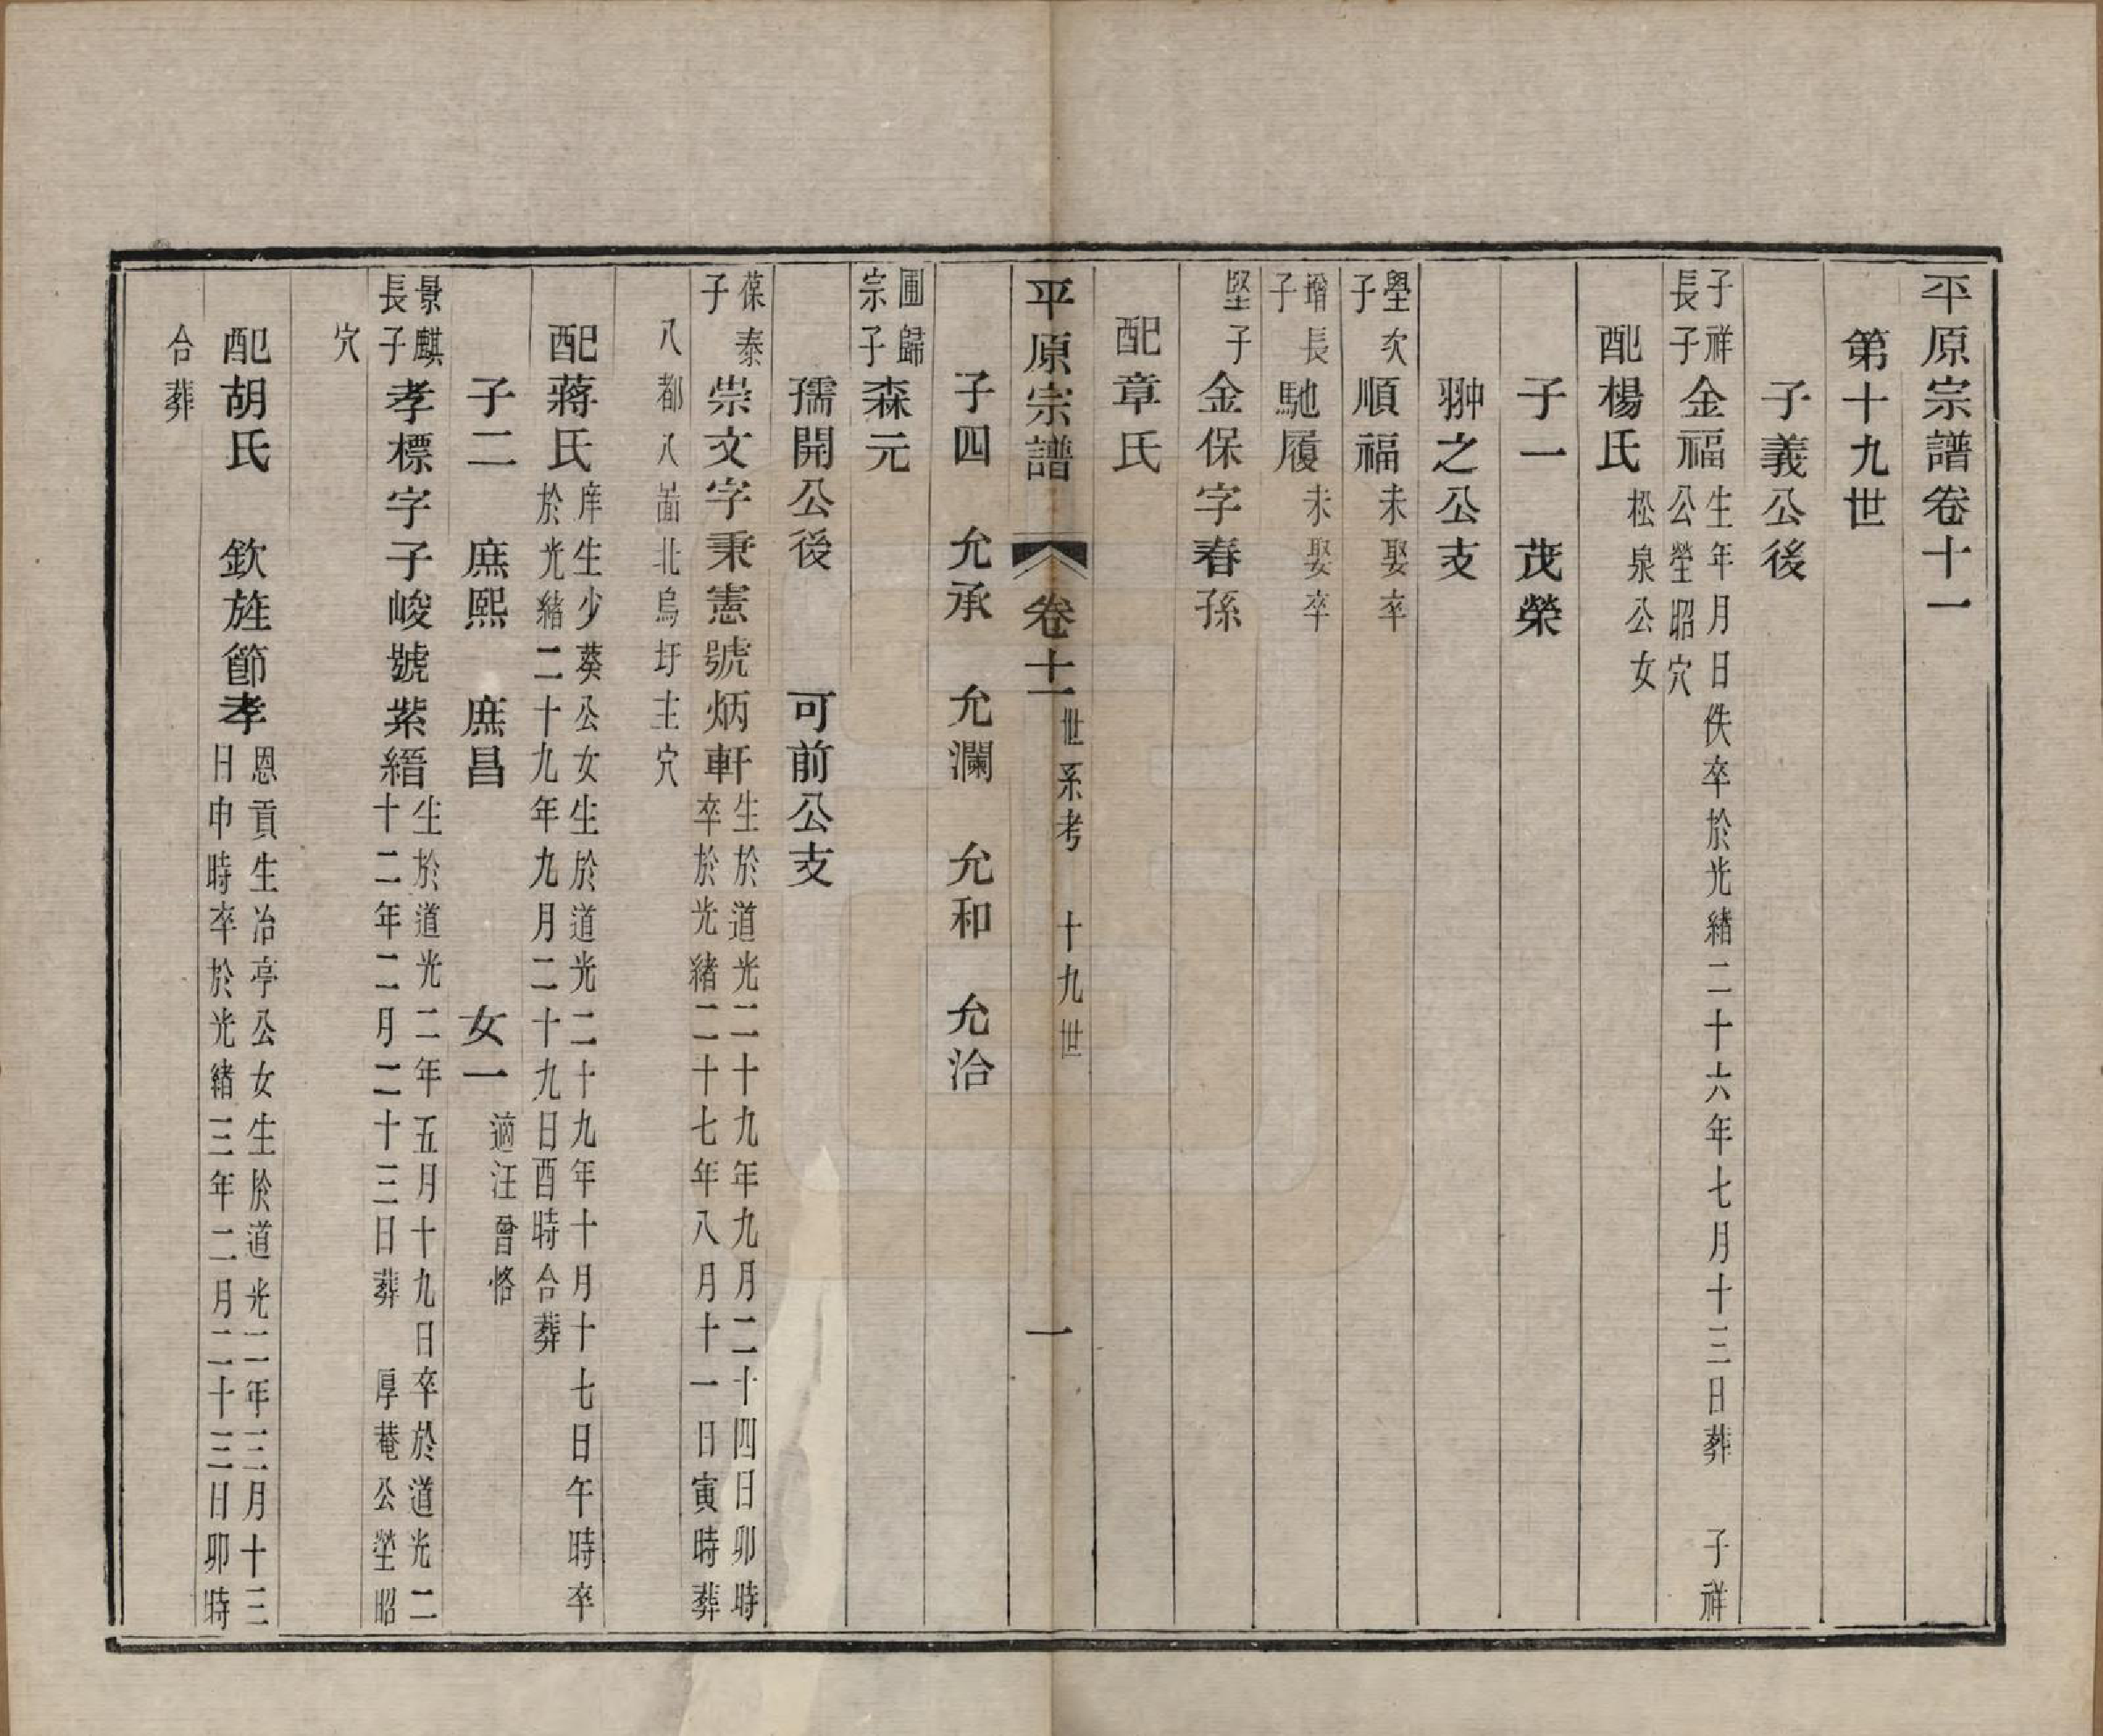 平原宗譜卷十一
第十九世
子義公後
子祥長子
金福
生年月日佚卒於光緒二十六年七月十三日葬　子祥
公塋昭穴
配楊氏
松泉公女
子一　茂榮
翀之公支
壆次子
順福
未娶卒
壻長子
馳履
未娶卒
堅子
金保字春孫
配章氏
平原宗譜　卷十一　世系考　十九世　一
子四　允承　允瀾　允和　允洽
圃歸宗子
森元
孺開公後　可前公支
葆泰子
崇文字秉憲號炳軒
生於道光二十九年九月二十四日卯時
卒於光緒二十七年八月十一日寅時葬
八都八啚北烏圩主穴
配蔣氏
庠生少葵公女生於道光二十九年十月十七日午時卒
於光緒二十九年九月二十九日酉時合葬
子二　庶熙　庶昌　女一
適汪曾恪
景麒長子
孝標字子峻號紫縉
生於道光二年五月十九日卒於道光二
十二年二月二十三日葬　厚菴公塋昭
穴
配胡氏　欽旌節孝
恩貢生冶亭公女生於道光二年三月十三
日申時卒於光緒三年二月二十三日卯時
合葬